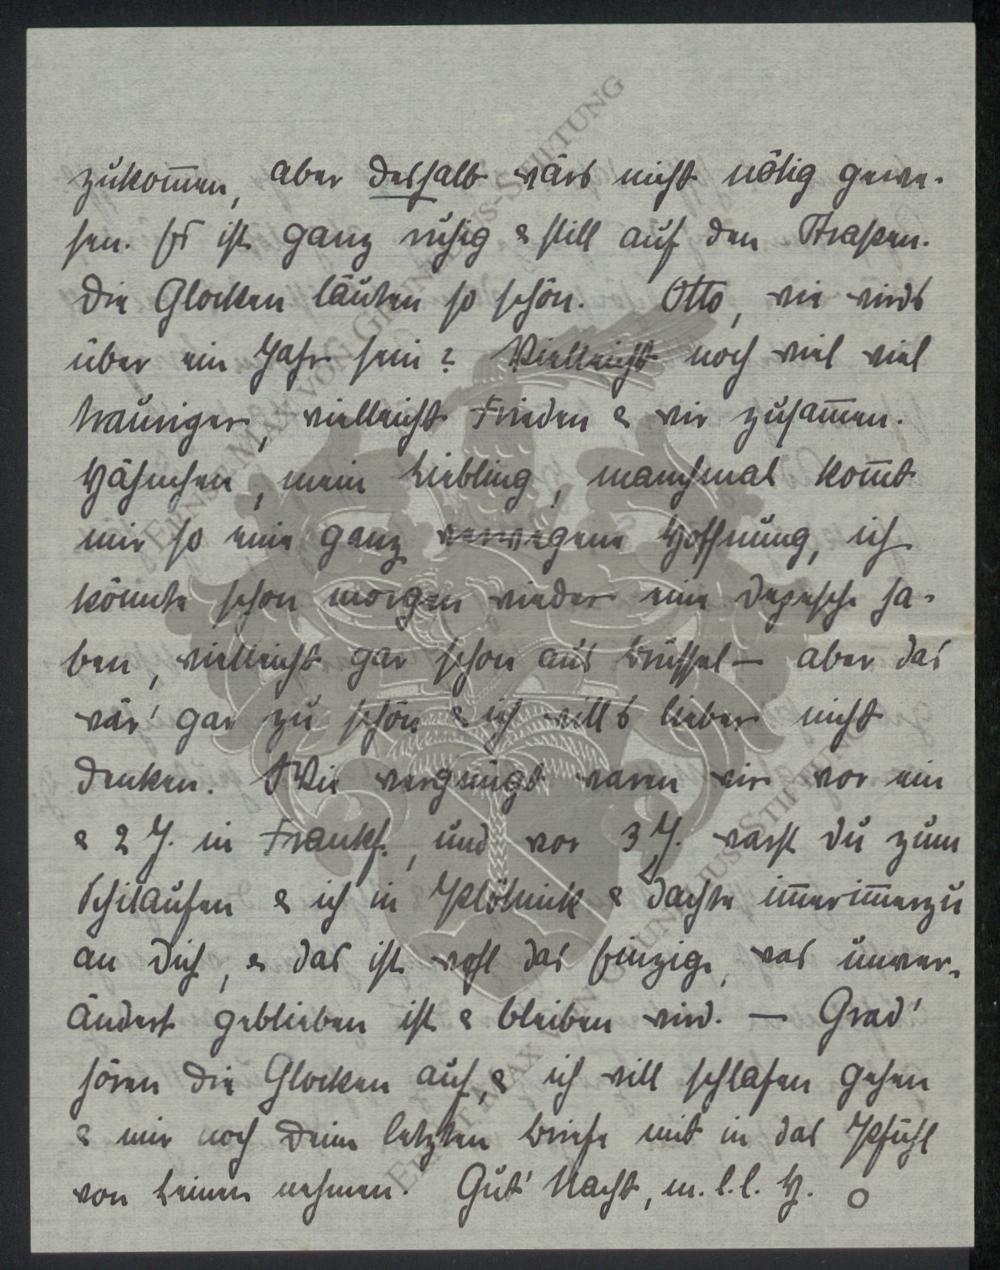 zukommen, aber deshalb wärs nicht nötig gewe-
sen. Es ist ganz ruhig & still auf den Straßen.
Die Glocken läuten so schön. Otto, wie wirds
über ein Jahr sein? Vielleicht noch viel viel
trauriger, vielleicht Frieden & wir zusammen.
Hähnchen, mein Liebling, manchmal kommt
mir so eine ganz verwegene Hoffnung, ich
könnte schon morgen wieder eine Depesche ha-
ben, vielleicht gar schon aus Brüssel – aber das
wär' gar zu schön & ich will's lieber nicht
denken. Wie vergnügt waren wir vor ein
& 2 J. in Frankf., und vor 3 J. warst Du zum
Schilaufen & ich in & dachte immerimmerzu
an Dich, & das ist wohl das Einzige, was unver-
ändert geblieben ist & bleiben wird. — Grad'
hören die Glocken auf, & ich will schlafen gehen
& mir noch Deine letzten Briefe mit in das Pfühl
von Leinen nehmen. Gut' Nacht, m. l. l. H. O
ERNST MAX VON GRUNELIUS-STIFTUNG
ERNST MAX VON GRUNELIUS-STIFTUNG